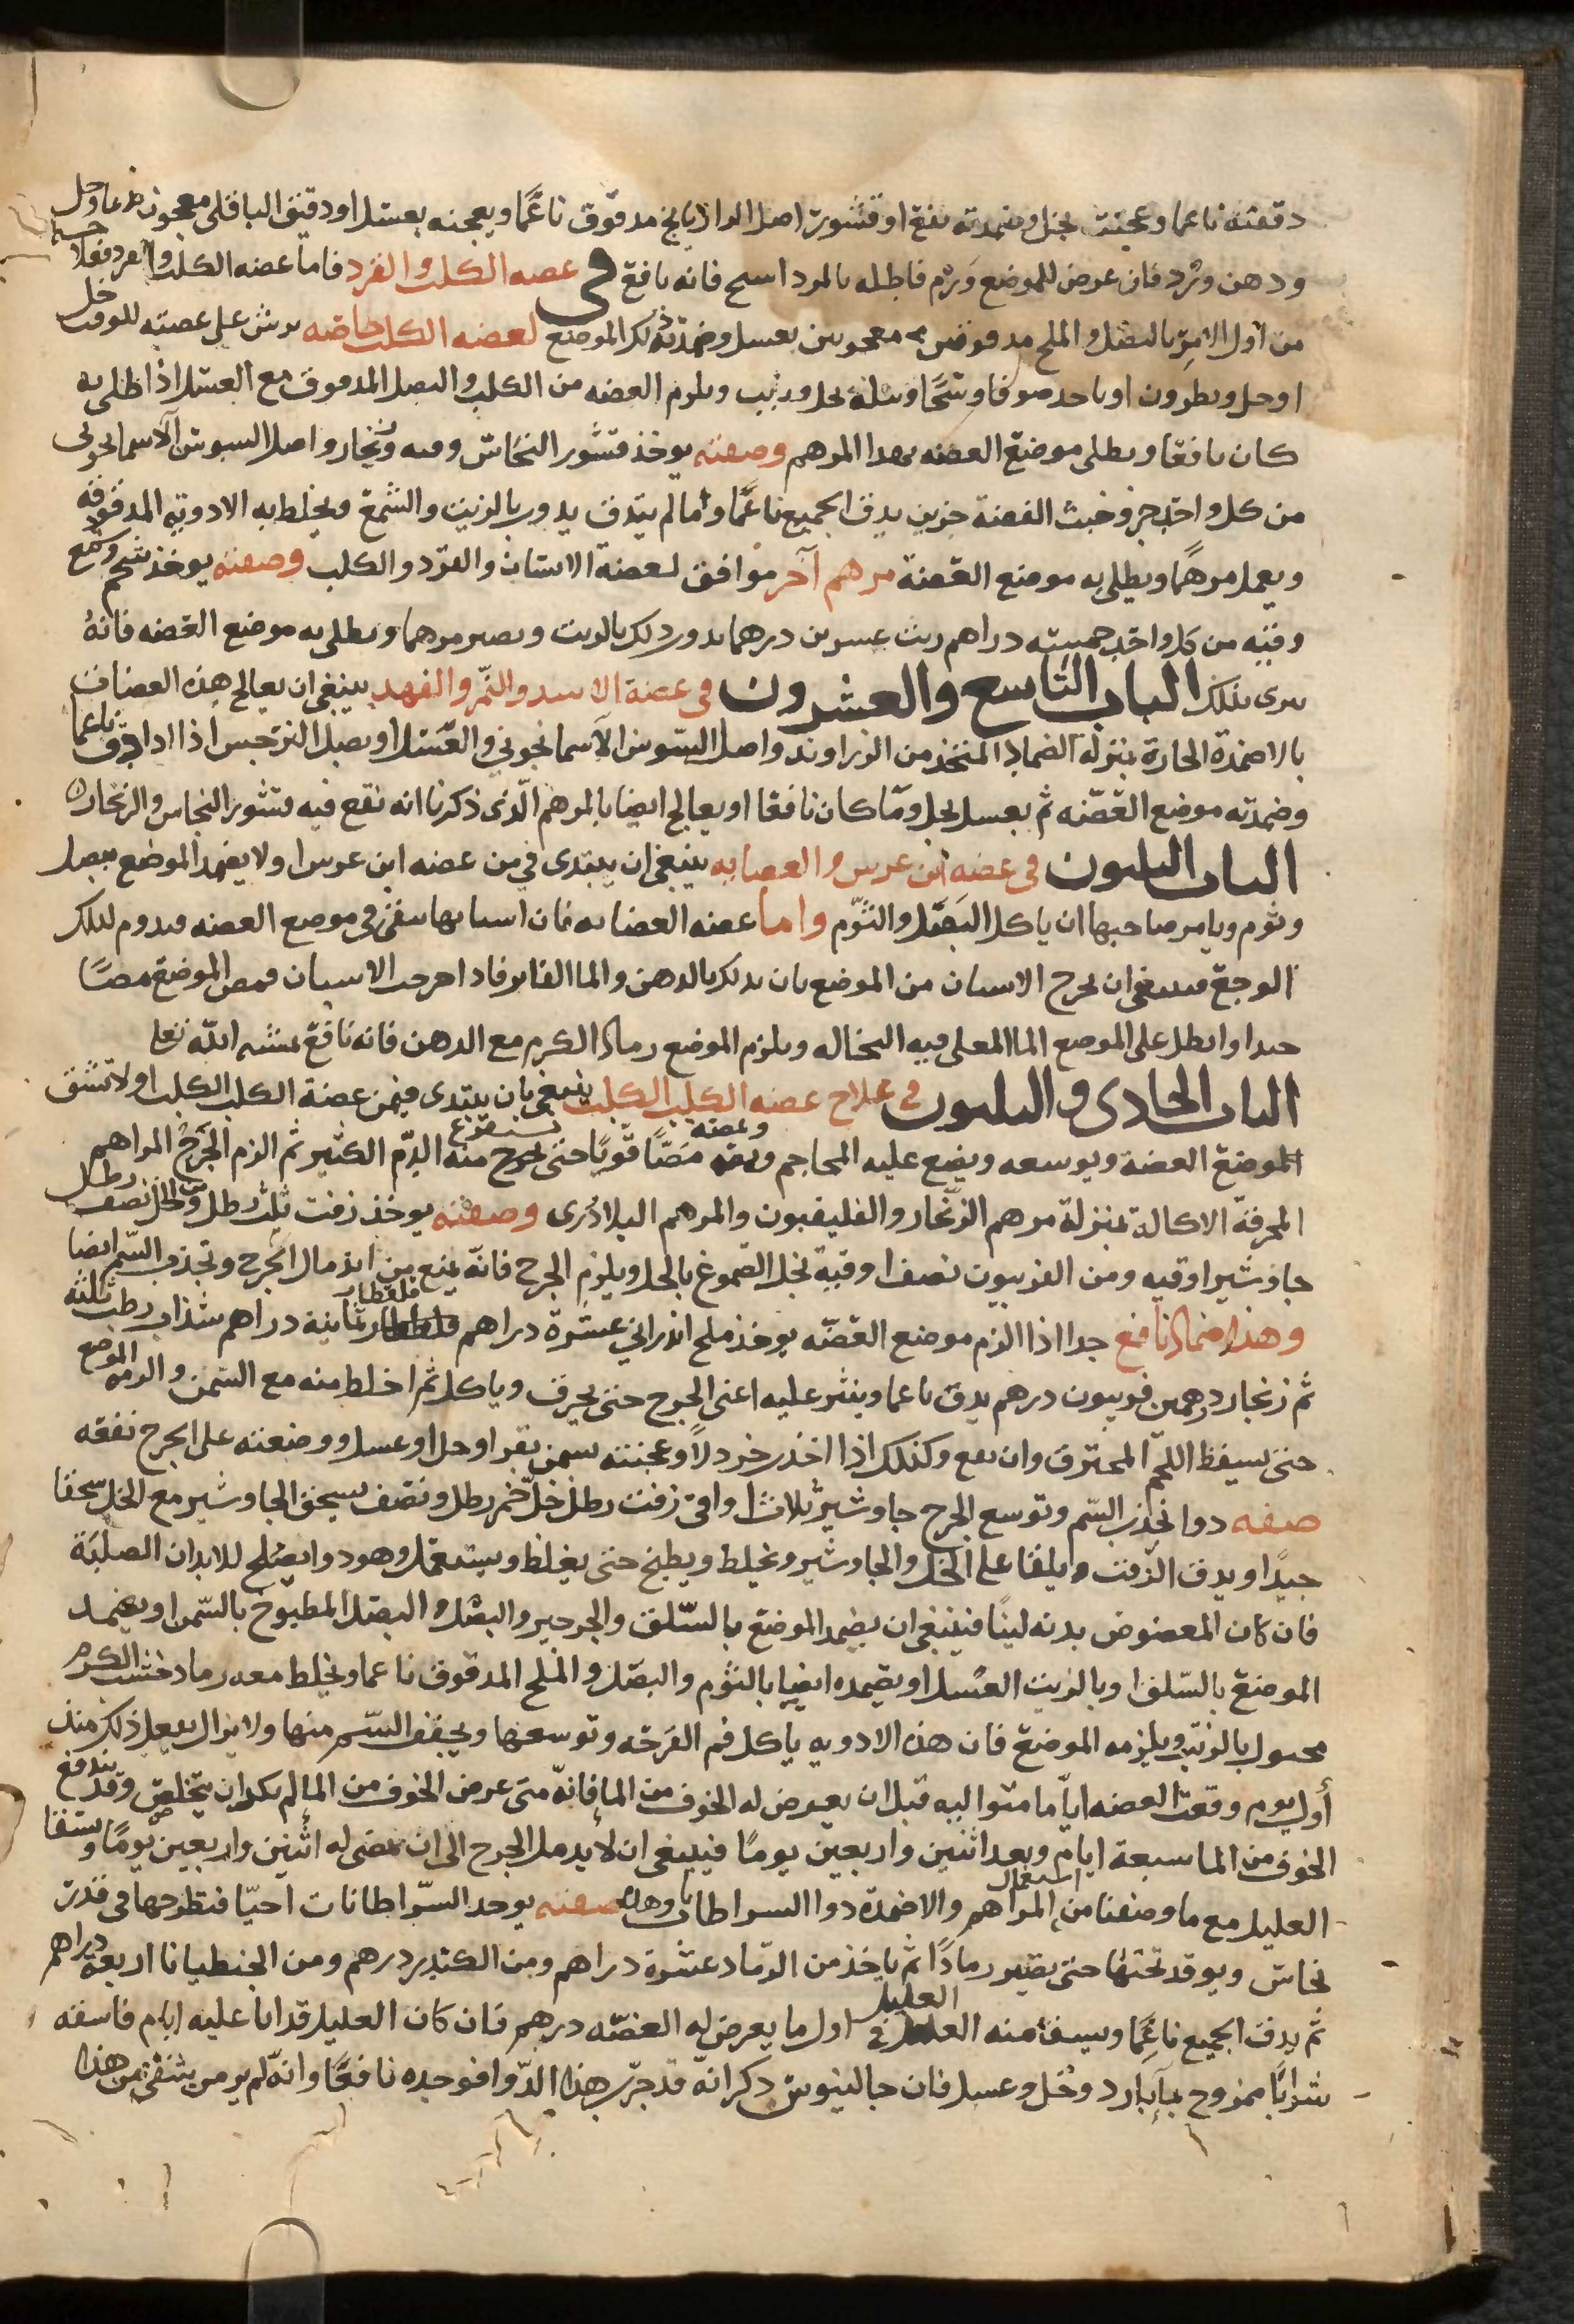 دقته ناعما وعجنته بخل وضمدته نفع او قشور اصل الرازيانج مدقوق ناعمًا ويعجنه بعسل او دقيق الباقلى معجون بماء وخل
ودهن ورد فان عرض للموضع ورم فاطله بالمرداسنج فانه نافع في عضه الكلب والقرد فاما عضه الكلب والقرد
من اول الامر بالبصل والملح مدقوقين معجونين بعسل وضمدته ذلك الموضع لعضه الكلب خاصه يرش على عضته للوقت خل
او خل ونطرون او ياخذ صوفا وسخًا وبلّه بخل وزيت ويلزم العضه من الكلب والبصل المدقوق مع العسل اذا طلى به
كان نافعا ويطلى موضع العضه بهذا المرهم وصفته يوخذ قشور النحاس وقنه وزنجار واصل السوسن الاسمانجونى
من كل واحد جزو خبث الفضة جزين يدق الجميع ناعمًا وما لم يندق يدوب بالزيت والشمع ويخلط به الادويه المدقوقه
ويعمل مرهمًا ويطلى به موضع العضة مرهم آخر موافق لعضة الانسان والقرد والكلب وصفته يوخذ شحم وشمع
وقنه من كل واحد خمسه دراهم زيت عشرين درهما يدوب ذلك بالزيت ويصير مرهما ويطلى به موضع العضه فانهُ
يبرى بذلك الباب التاسع والعشرون في عضة الاسد والنمر والفهد ينبغى ان يعالج هذه العضات
بالاضمدة الحارة بمنزلة الضماد المتخذ من الزراوند واصل السوسن الآسمانجونى والعسل او بصل النرجس اذا دق ناعما
وضمدته موضع العضه ثم يغسل بخل وما كان نافعا او يعالج ايضا بالمرهم الذى ذكرنا انه نقع فيه قشور النحاس والزنجار
الباب الثلثون في عضه ابن عرس والعضايه ينبغى ان يبتدى في من عضه ابن عرس اولا يضمد الموضع ببصل
وثوم ويامر صاحبها ان ياكل البصل والثوم واما عضه العضايه فان اسنانها تبقى في موضع العضه ويدوم لذلك
الوجع فينبغى ان يخرج الاسنان من الموضع بان يدلك بالدهن والما الفاتر فاذا خرجت الاسنان فمص الموضع مصًا
جيدا وانطل على الموضع الما المغلى فيه النخاله ويلزم الموضع رماد الكرم مع الدهن فانه نافع بمشية الله تعالى
الباب الحادى والثلثون في علاج عضه الكلب الكلب ينبغى بان يبتدى فيمن عضة الكلب الكلب اولا تشق
الموضع العضة ويوسعه ويضع عليه المحاجم ومصه مصًّا قويًا حتى يخرج منه الدم الكثير ثم الزم الجرح المراهم
المحرقة الاكالة بمنزلة مرهم الزنجار والفليفيون والمرهم البلادرى وصفته يوخذ زفت ثلث رطل ومن الخل نصف رطل
جاوشير اوقيه ومن الفربيون نصف اوقية تحل الصموغ بالخل ويلزم الجرح فانه يمنع من اندمال الجرح وتجذب السم ايضا
وهذا ضماد نافع جدا اذا الزم موضع العضه يوخذ ملح اندرانى عشرة دراهم قلقطار ثمانية دراهم سذاب رطب ثلثه
ثم زنجار درهمين فربيون درهم يدق ناعما وينثر عليه اعنى الجرح حتى يحرق وياكل ثم اخلط منه مع السمن والزمه الموضع
حتى يسقط اللحم المحترق وان يقع وكذلك اذا اخذت خردلاً وعجنته بسمن بقر او خل او عسل ووضعته على الجرح نفعه
صفه دوا يجذب السم وتوسع الجرح جاوشير ثلاث اواقى زفت رطل خل خمر رطل ونصف يسحق الجاوشير مع الخل سحقا
جيدًا ويدق الزفت ويلقا على الخل والجاوشير ويخلط ويطبخ حتى يغلظ ويستعمل وهو دوا يصلح للابدان الصلبَة
فان كان المعضوض بدنه لينًا فينبغى ان يضمد الموضع بالسلق والجرجير والبصل والبصل المطبوخ بالسمن او يضمد
الموضع بالسلق او بالزيت العسل او يضمده ايضا بالثوم والبصل والملح المدقوق ناعما ويخلط معه رماد خشب الكرم
مجبول بالزيت ويلزمه الموضع فان هذه الادويه ياكل فم القرحَه وتوسعها ويجفف السم منها ولا يزال يفعل ذلك منذ
أول يوم وقعت العضه اياما متواليه قبل ان يعرض له الخوف من الما فانه متى عرض الخوف من الما لم يكد ان يتخلص وقد يندفع
الخوف من الما سبعة ايام وبعد اثنين واربعين يومًا فينبغى ان لا يدمل الجرح الى ان يمضى له اثنين واربعين يومًا ويسقا
العليل مع ما وصفنا من استعمال المراهم والاضمدة دوا السراطانات وهذه صفته يوخذ السراطانات احيّا فتطرحها في قدر
نحاس ويوقد تحتها حتى يصير رمادًا ثم ياخذ من الرماد عشرة دراهم ومن الكندر درهم ومن الجنطيانا اربعة دراهم
ثم يدق الجميع ناعمًا ويسف منه العليل في اول ما يعرض له العضّه درهم فان كان العليل قد اتا عليه ايام فاسقه
شرابًا ممزوج بمآ بارد وخل وعسل فان جالينوس ذكر انه قد جرّب هذا الدّوا فوجده نافعًا وانه لم ير من يسقى من هذا